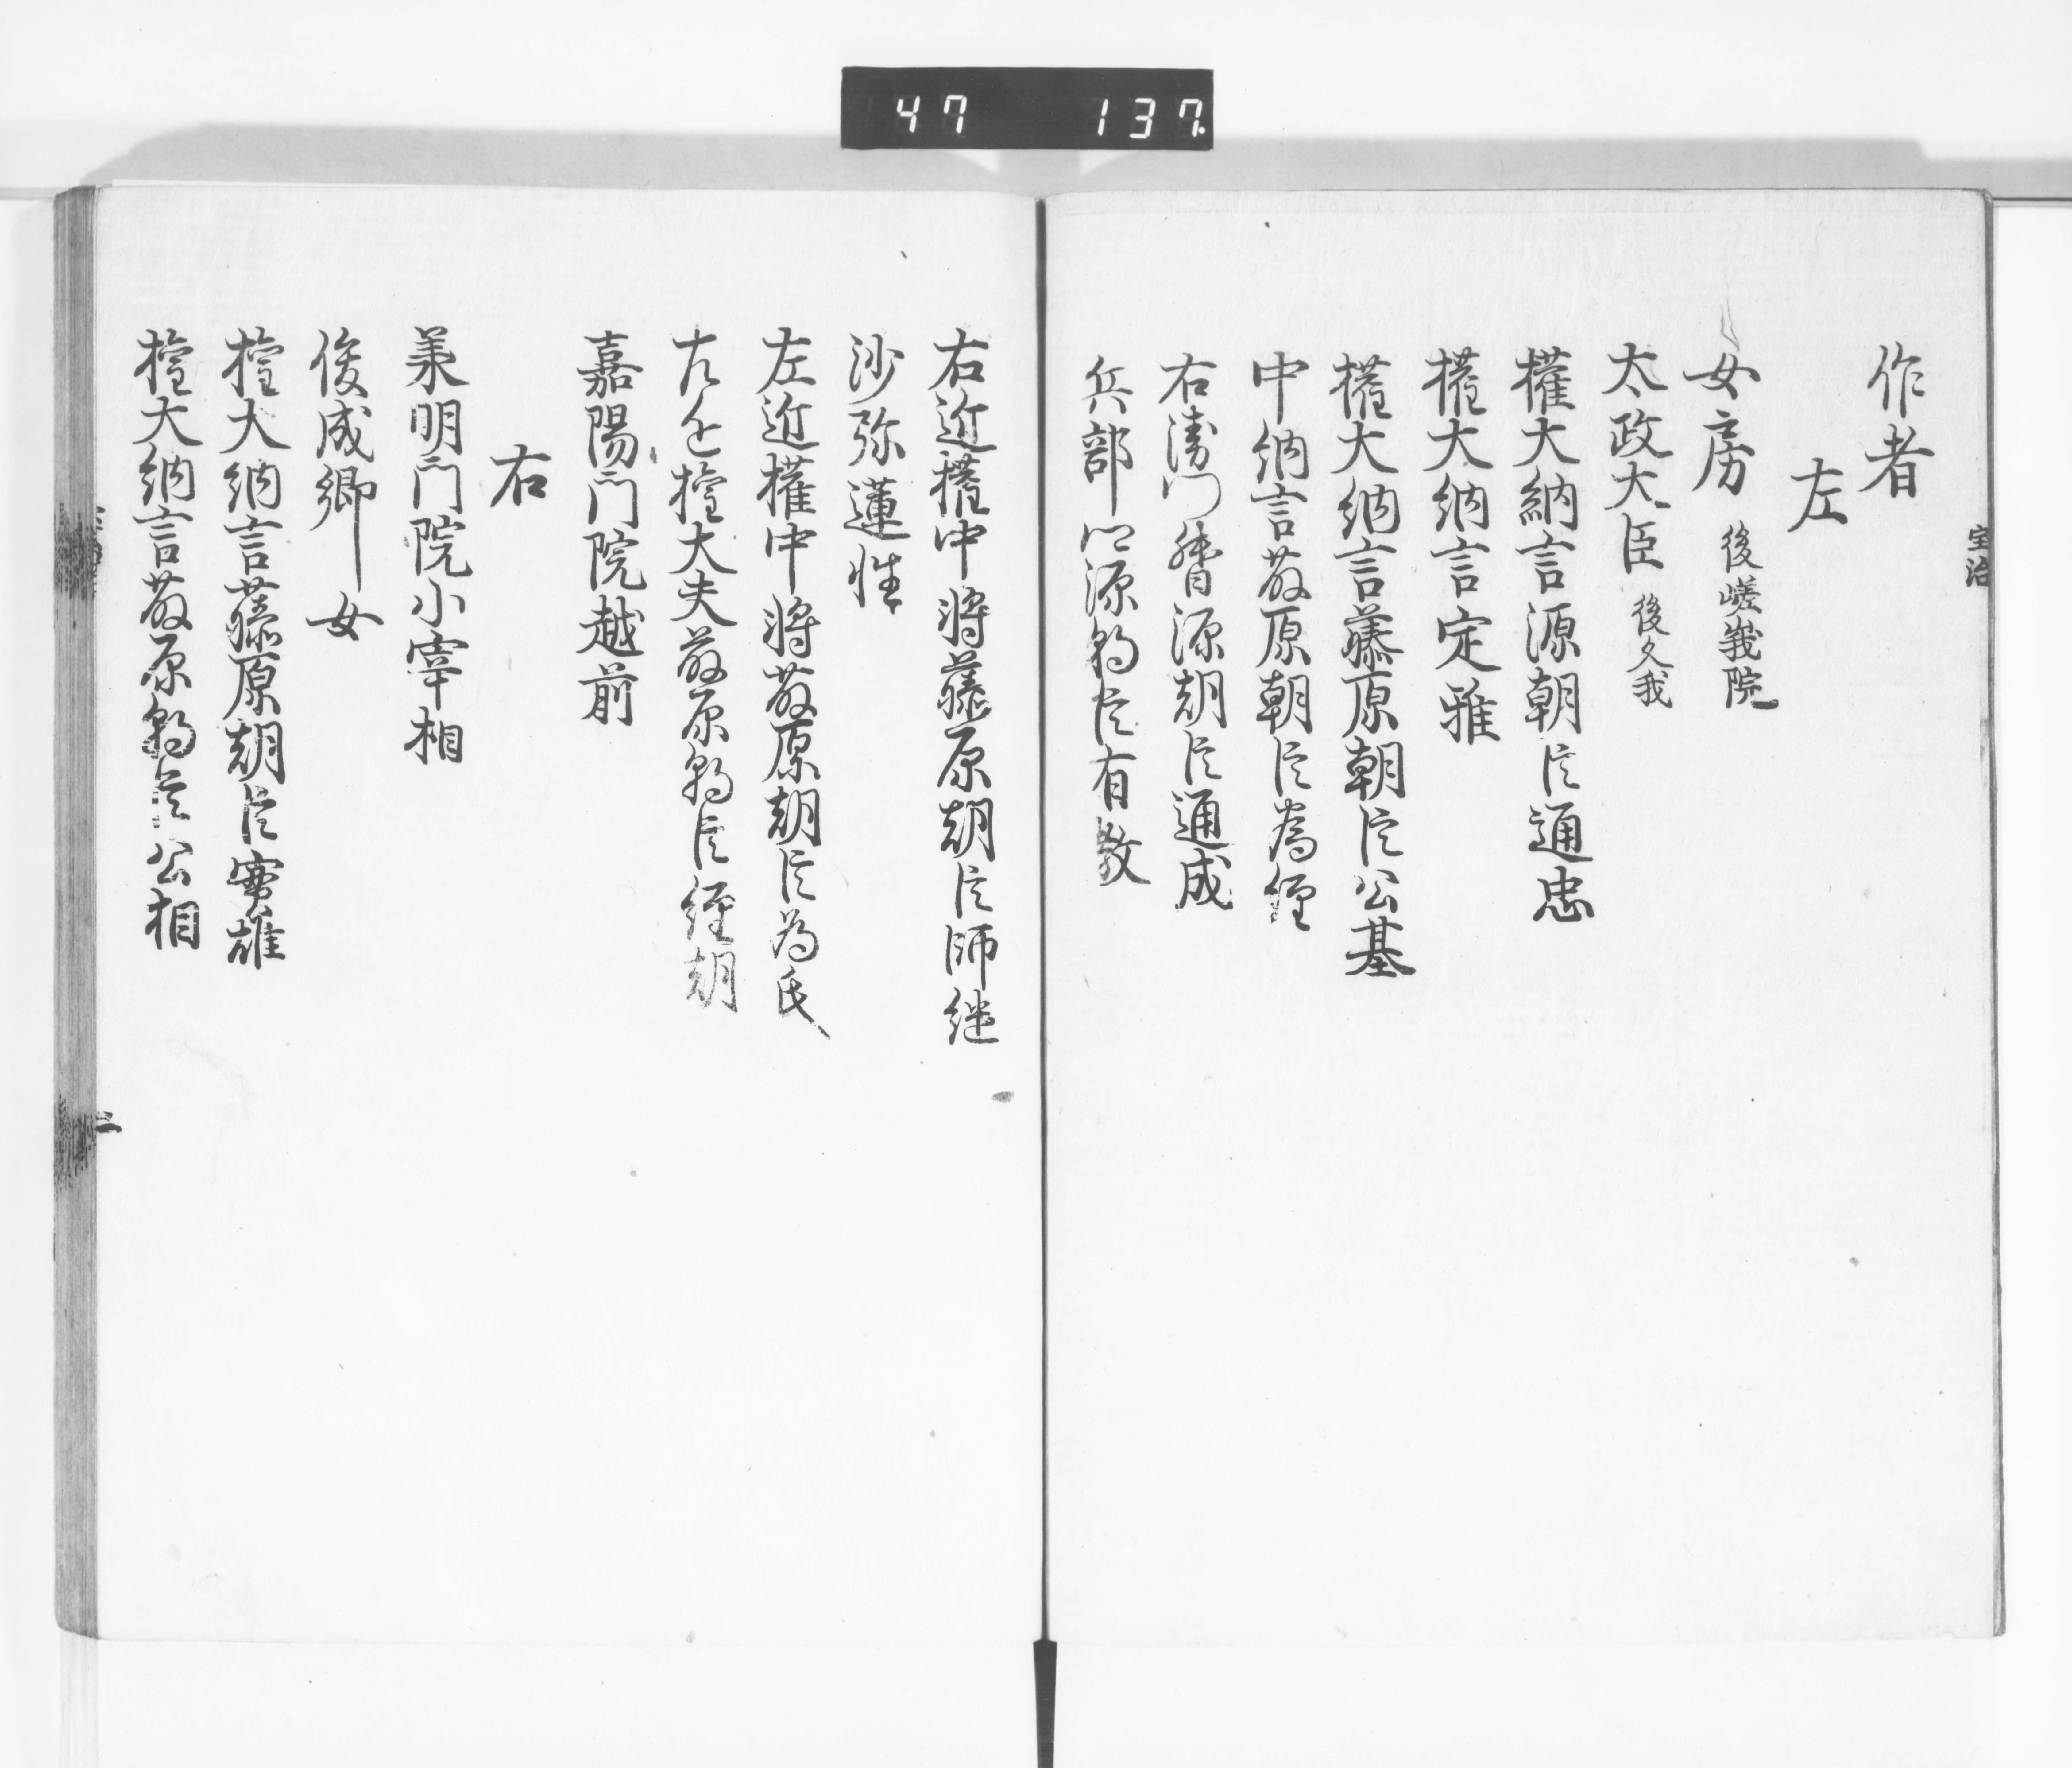 47 137
宝治
作者
左
女房 後嵯峨院
太政大臣 後久我
權大納言源朝臣通忠
權大納言定雅
權大納言藤原朝臣公基
中納言藤原朝臣為経
右衛門督源朝臣通成
兵部卿源朝臣有教
右近權中将藤原朝臣師継
沙弥蓮性
左近權中将藤原朝臣為氏
左京權大夫藤原朝臣経朝
嘉陽門院越前
右
承明門院小宰相
俊成卿女
權大納言藤原朝臣實雄
權大納言藤原朝臣公相
二